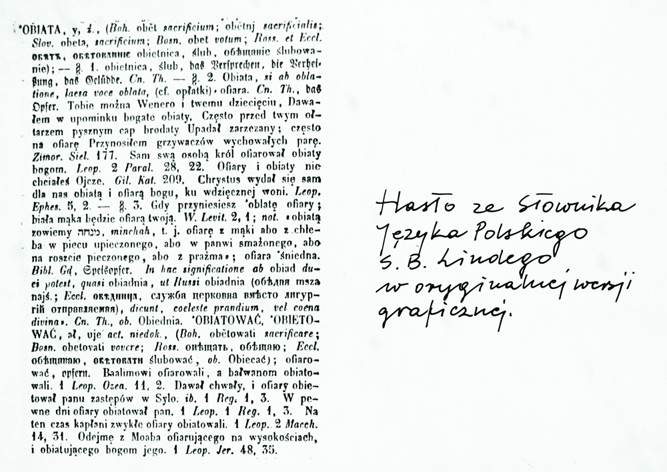 *OBIATA, y, ż., (Boh. obět sacrificium; obětnj sacrificialis;
Slov. obeta, sacrificium; Bosn. obet votum; Ross. et Eccl.
обѣтъ, обѣтованіе obietnica, ślub, обѣщаніе ślubowa-
nie); — §. 1. obietnica, ślub, das Versprechen, die Verhei-
ßung, das Gelübde. Cn. Th. — §. 2. Obiata, si ab obla-
tione, laesa voce oblata, (cf. opłatki) · ofiara. Cn. Th., das
Opfer. Tobie można Wenero i twemu dziecięciu, Dawa-
łem w upominku bogate obiaty. Często przed twym oł-
tarzem pysznym cap brodaty Upadał zarzezany; często
na ofiarę Przynosiłem grzywaczów wychowałych parę.
Zimor. Siel. 177. Sam swą osobą król ofiarował obiaty
bogom. Leop. 2 Paral. 28, 22. Ofiary i obiaty nie
chciałeś Ojcze. Gil. Kat. 209. Chrystus wydał się sam
dla nas obiatą i ofiarą bogu, ku wdzięcznej woni. Leop.
Ephes. 5, 2. — §. 3. Gdy przyniesiesz °oblatę ofiary;
biała mąka będzie ofiarą twoją. W. Levit. 2, 1; not. «obiatą
zowiemy מנחה, minchah, t. j. ofiarę z mąki abo z chle-
ba w piecu upieczonego, abo w panwi smażonego, abo
na roszcie pieczonego, abo z prażma»; ofiara śniedna.
Bibl. Gd, Speisopfer. In hac significatione ab obiad du-
ci potest, quasi obiadnia, ut Russi obiadnia (обѣдня msza
najś.; Eccl. обѣдница, служба церковна вмѣсто литур-
гіи отправляемая), dicunt, coeleste prandium, vel coena
divina». Cn. Th., ob. Obiednia. *OBIATOWAĆ, *OBIETO-
WAĆ, ał, uje act. niedok., (Boh. obětowati sacrificare;
Bosn. obetovati vovere; Ross. обѣщать, обѣщаю; Eccl.
обѣщаваю, обѣтовати ślubować, ob. Obiecać); ofiaro-
wać, opfern. Baalimowi ofiarowali, a bałwanom obiato-
wali. 1 Leop. Ozea. 11, 2. Dawał chwały, i ofiary obie-
tował panu zastępów w Sylo. ib. 1 Reg. 1, 3. W pe-
wne dni ofiary obiatował pan. 1 Leop. 1 Reg. 1, 3. Na
ten czas kapłani zwykłe ofiary obiatowali. 1 Leop. 2 Macch.
14, 31. Odejmę z Moaba ofiarującego na wysokościach,
i obiatującego bogom jego. 1 Leop. Jer. 48, 35.
Hasło ze Słownika
Języka Polskiego
S. B. Lindego
w oryginalnej wersji
graficznej.